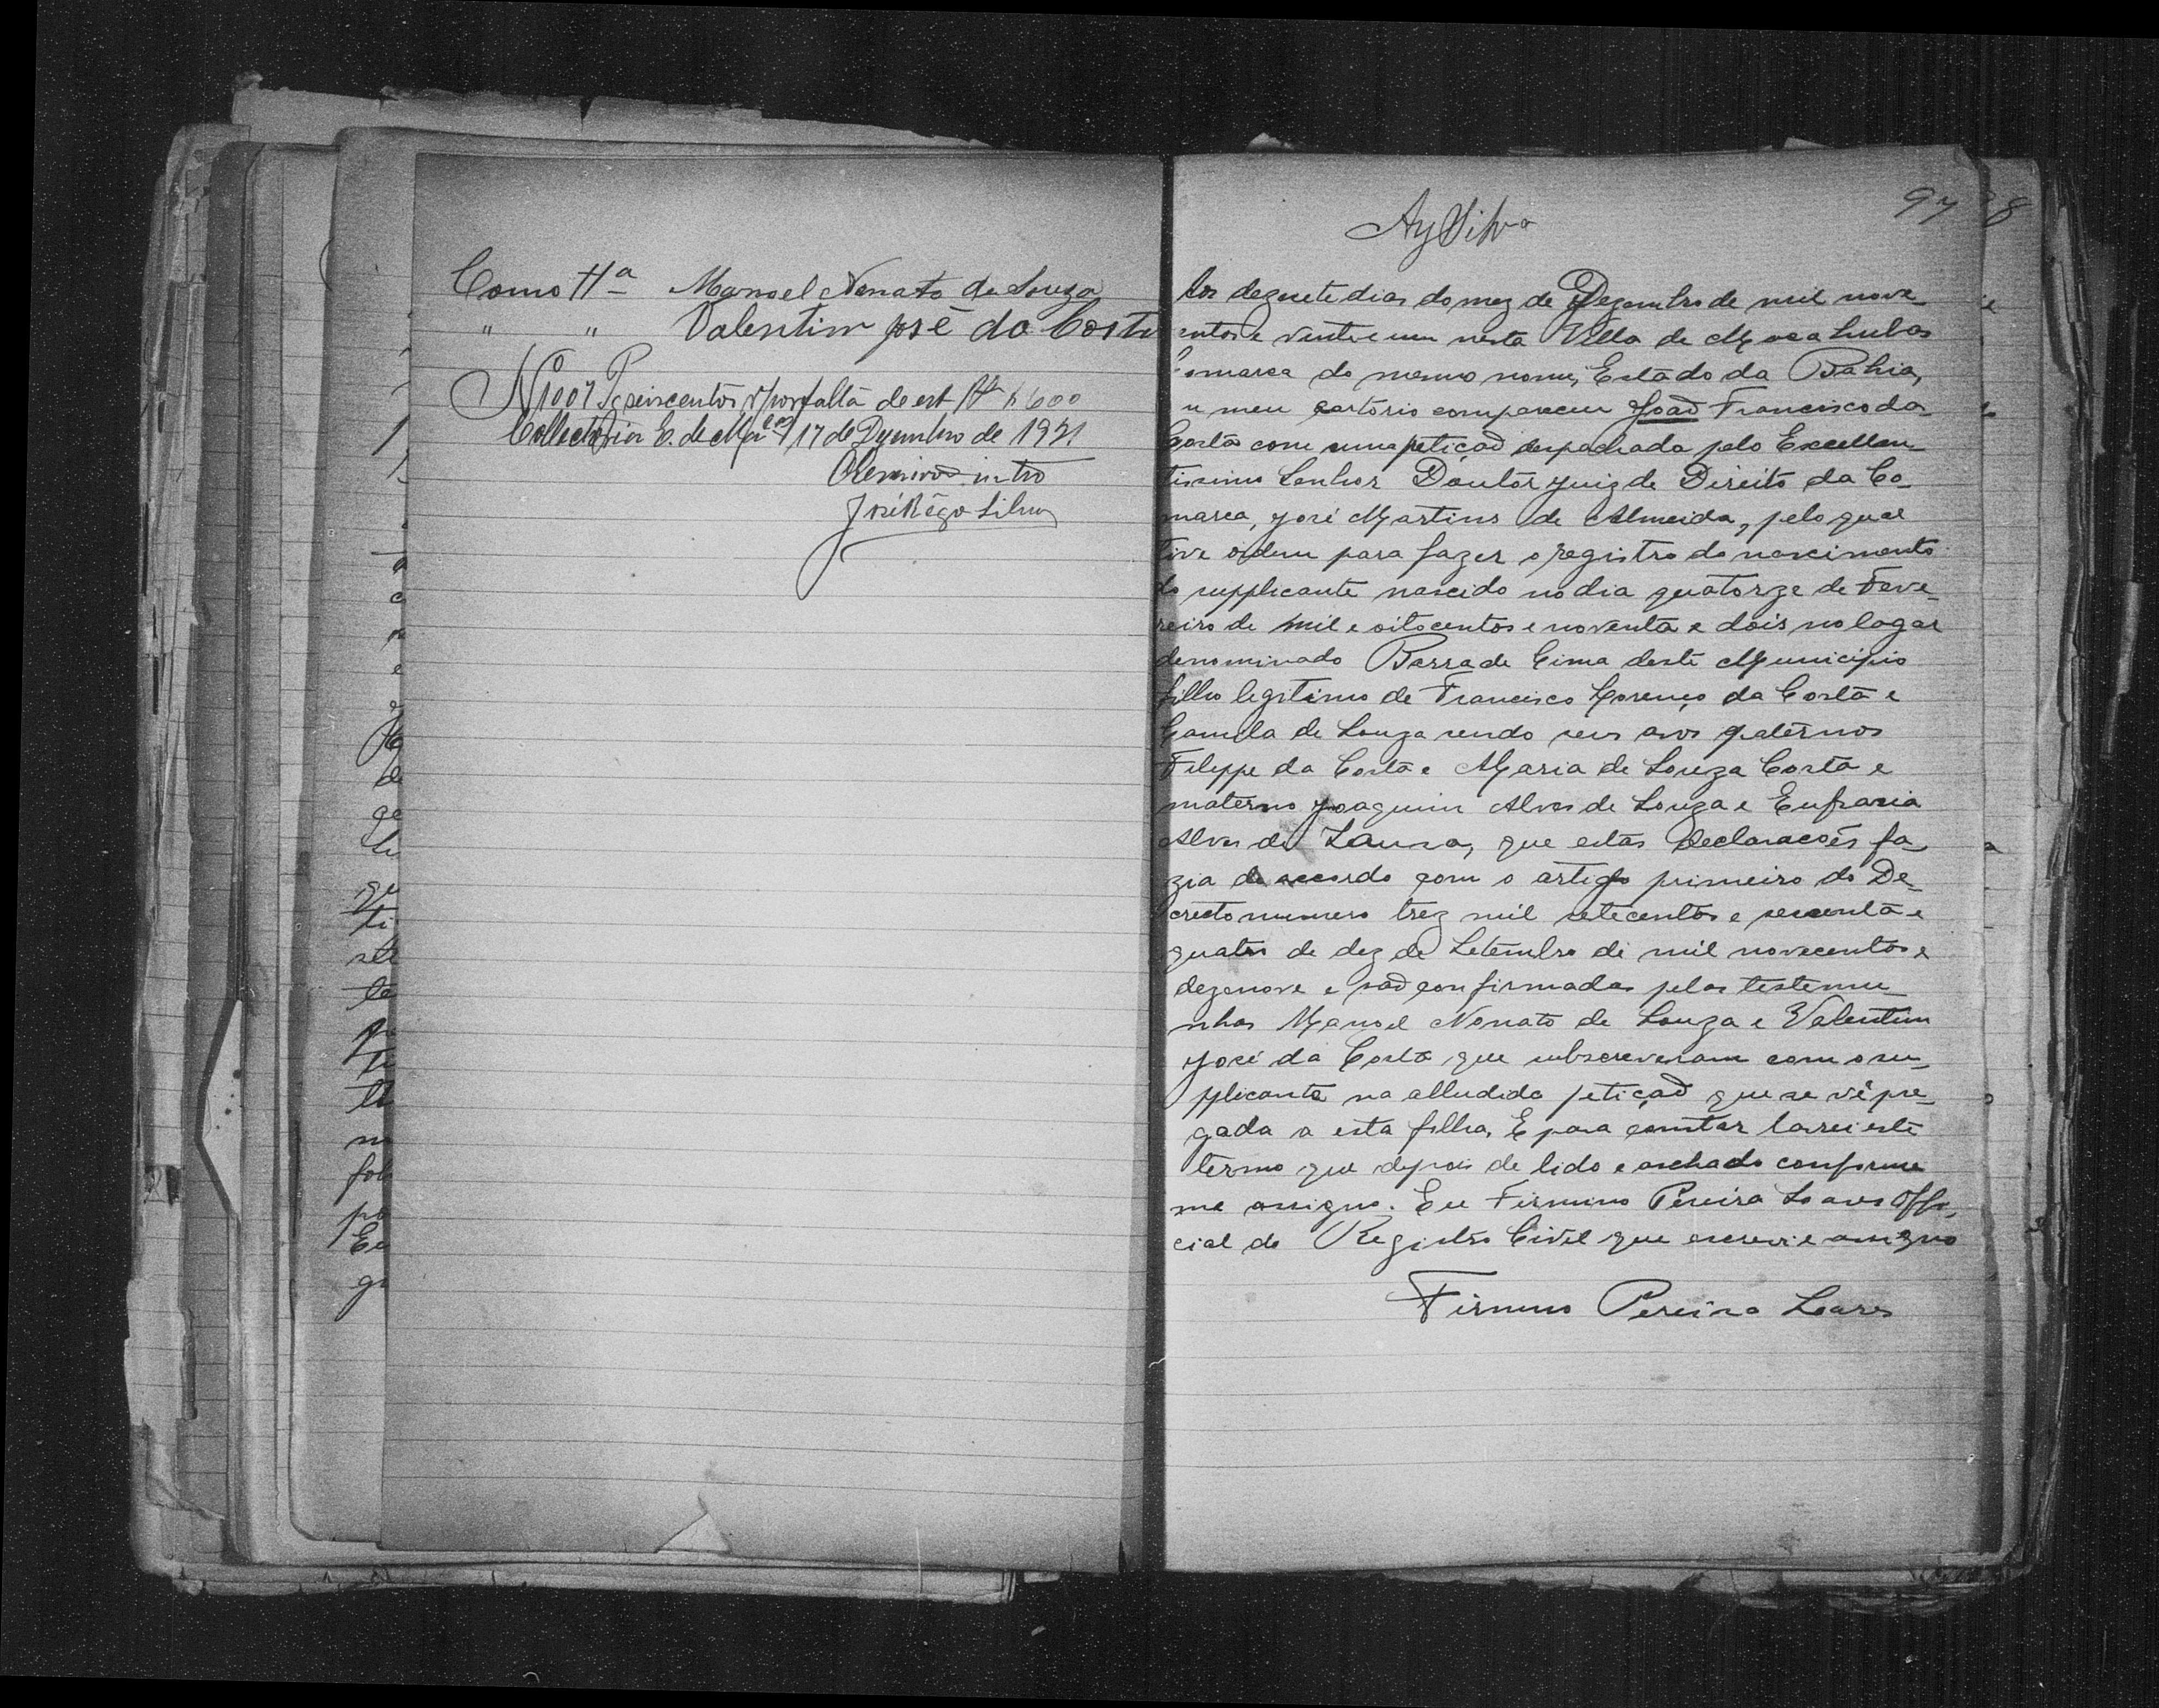 Como tta Manoel Nonato de Souza
" " Valentim José da Costa
N 1007 Pg seiscentos rs por falta de est Rs $600
Collectoria E. de 17 de Dezembro de 1921
José Rêgo Silva
97
8
Ay Silva
tos dezesete dias do mez de Dezembro de mil nove
centos e vinte e um nesta Villa de Macahubas
Comarca do mesmo nome, Estado da Bahia,
m meu cartorio compareceu Joaõ Francisco da
Costa com uma petiçaõ despachada pelo Excellen
tissimo Senhor Doutor Juiz de Direito da Co
marca, José Martins de Almeida, pelo qual
tive ordem para fazer o registro do nascimento
do supplicante nascido no dia quatorze de Feve
reiro de mil e oitocentos e noventa e dois no logar
denominado Barra de Cima deste Municipio
filho legitimo de Francisco Lorenço da Costa e
de Souza sendo seus avos paternos
Felippe da Costa e Maria de Souza Costa e
materno Joaquim Alves de Souza e Eufrasia
Alves de Souza, que estas declaracões fa
zia de accordo com o artigo primeiro do De
creto numero trez mil setecentos e sessenta e
quatro de dez de Setembro de mil novecentos e
dezenove e saõ confirmadas pelas testemu
nhas Manoel Nonato de Souza e Valentim
José da Costa que subscreveram com o su
pplicante na alludida petiçaõ que se vê pre
gada a esta folha. E para constar lavrei este
termo que depois de lido e achado conforme
me assigno. Eu Firmino Pereira Soares Offi
cial do Registro Civil que escrevi e assigno
Firmino Pereira Soares